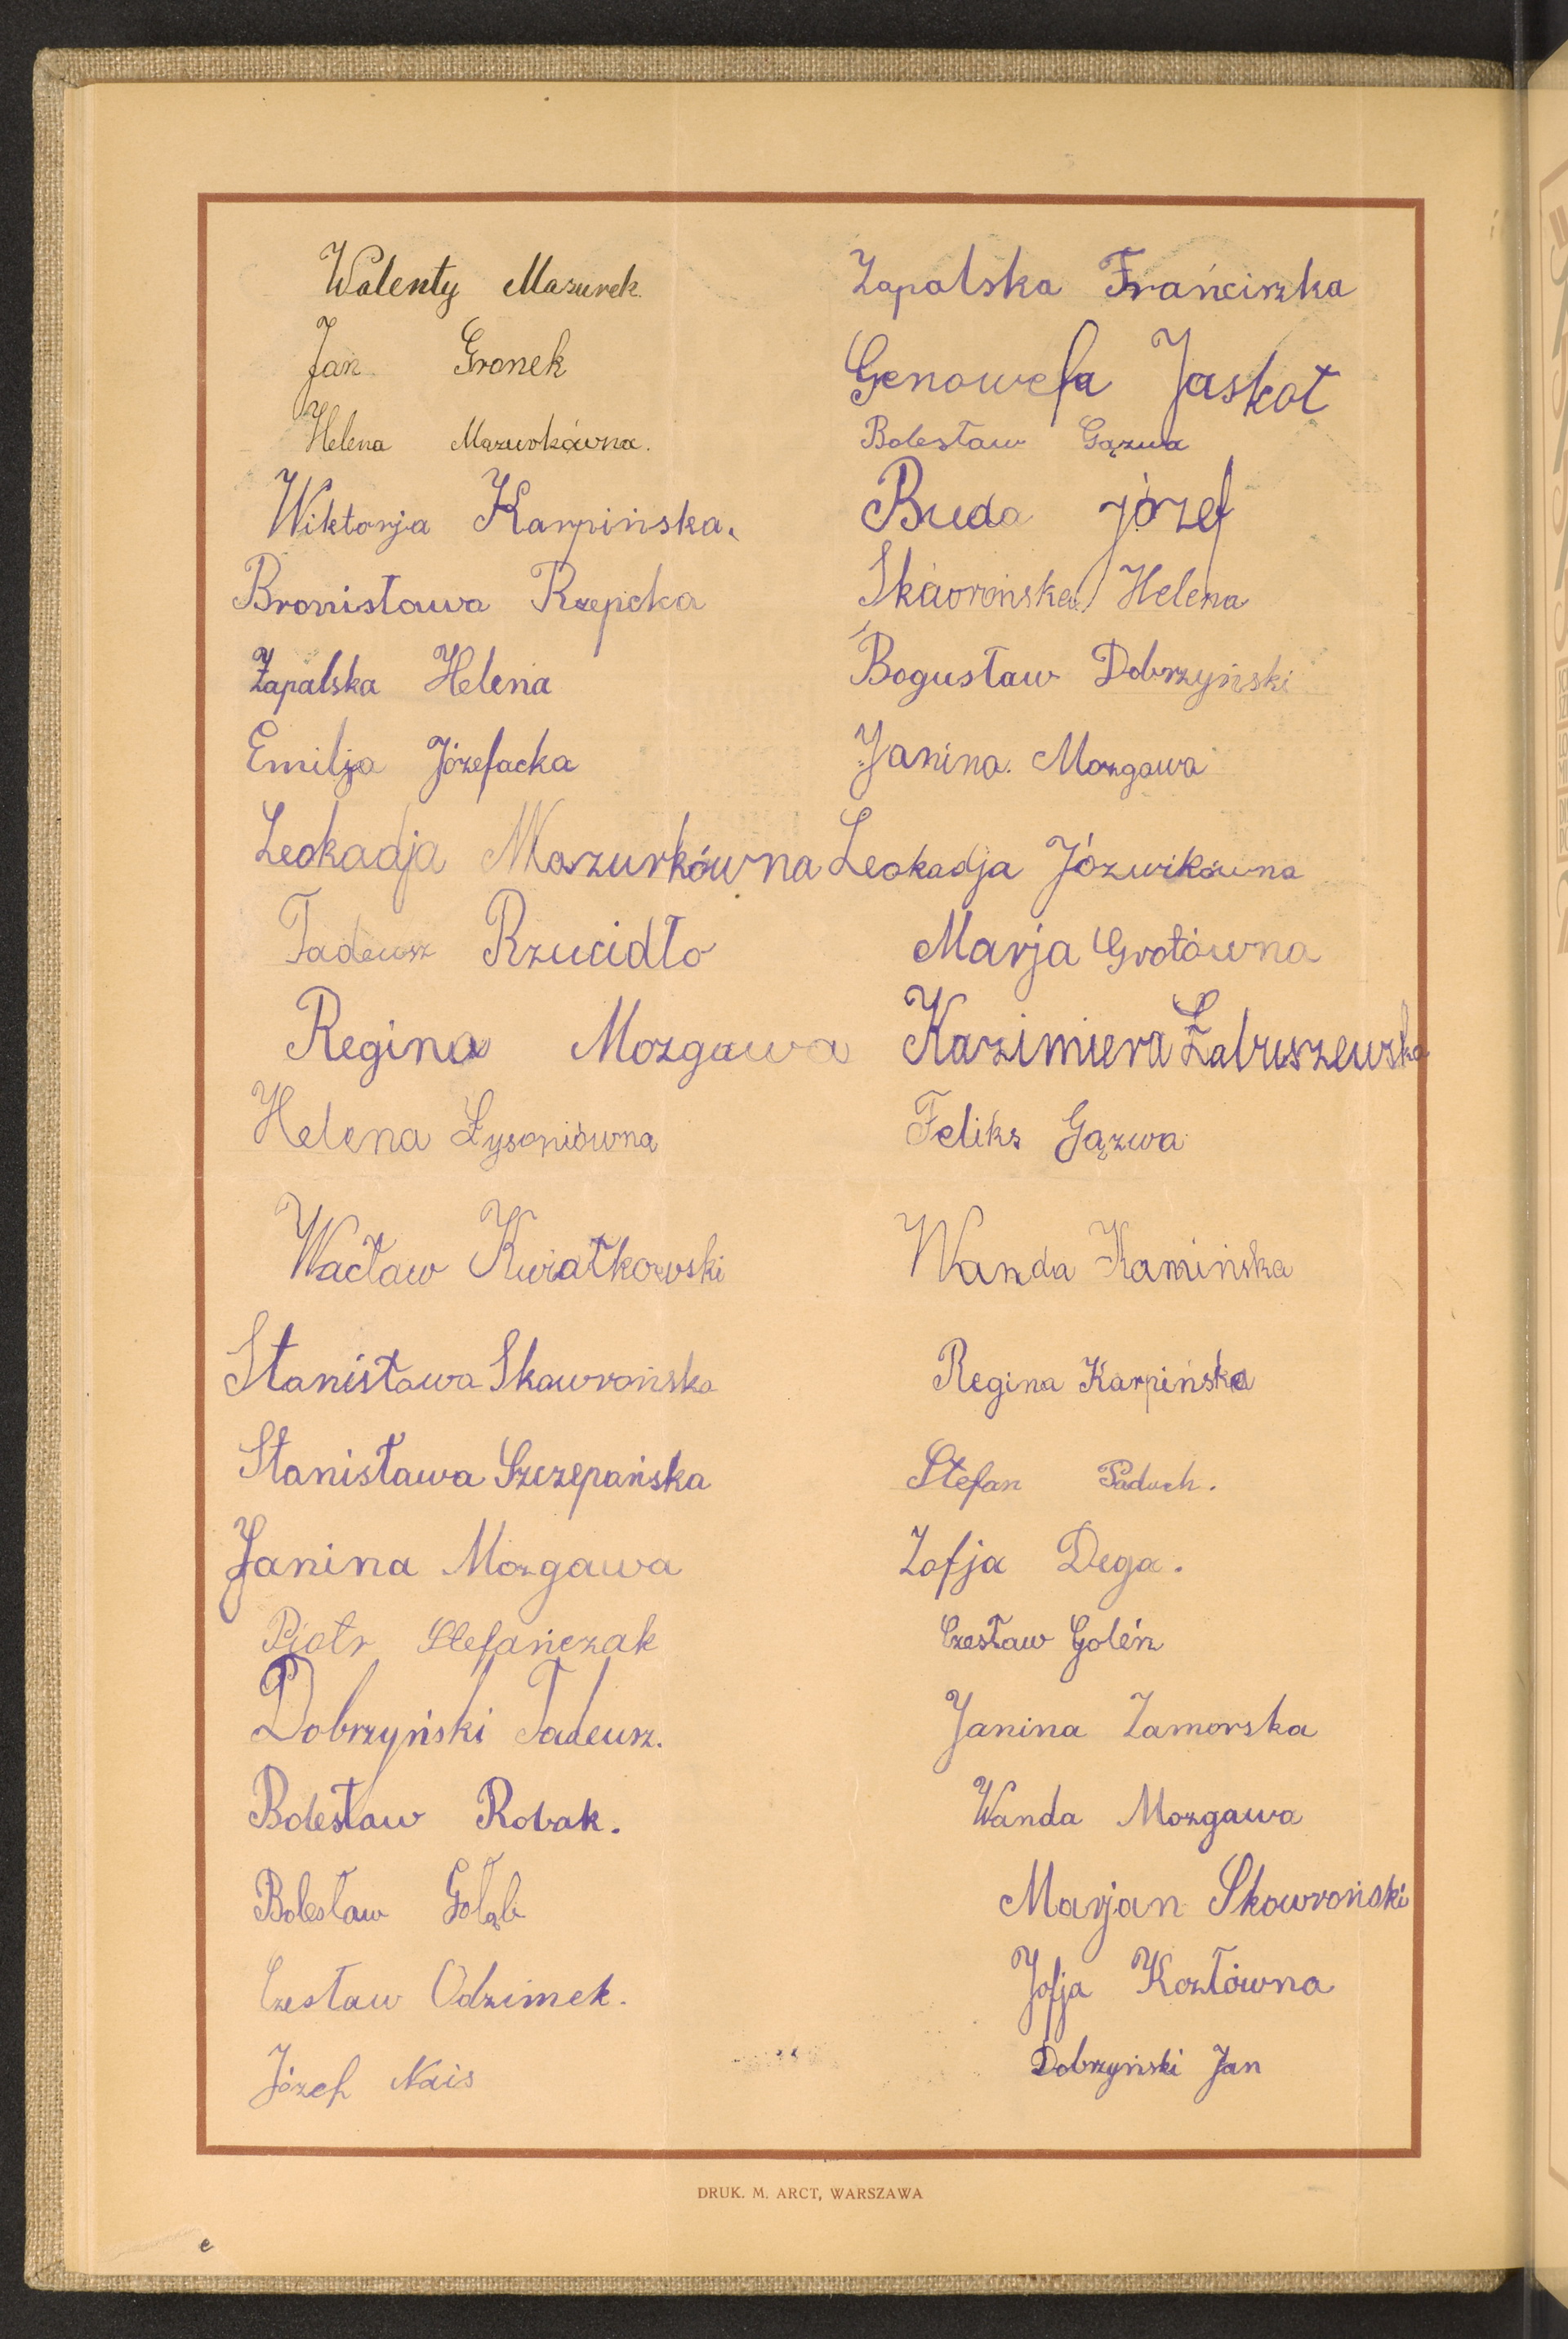 Walenty Mazurek.
Jan Gronek
Helena Mazurkówna.
Wiktorja Karpińska.
Bronisława Rzepcka
Zapalska Helena
Emilja Józefacka
Leokadja Mazurkówna
Tadeusz Rzucidło
Regina Mozgawa
Helena Łysoniówna
Wacław Kwiatkowski
Stanisława Skawrońska
Stanisława Szczepańska
Janina Mozgawa
Piotr Stefańczak
Dobrzyński Tadeusz.
Bolesław Robak.
Bolesław Gołąb
Czesław Odzimek.
Józef Nais
Zapalska Frańciszka
Genowefa Jaskot
Bolesław Gązwa
Buda józef
Skáorońska Helena
Bogusław Dobrzyński
Janina. Mozgawa
Leokadja Józwikówna
Marja Grotówna
Kazimiera
Feliks Gązwa
Wanda Kamińska
Regina Karpińska
Stefan Paduch.
Zofja Dega.
Czesław Goleń
Janina Zamorska
Wanda Mozgawa
Marjan Skowroński
Zofja Kozłówna
Dobrzyński Jan
DRUK. M. ARCT, WARSZAWA